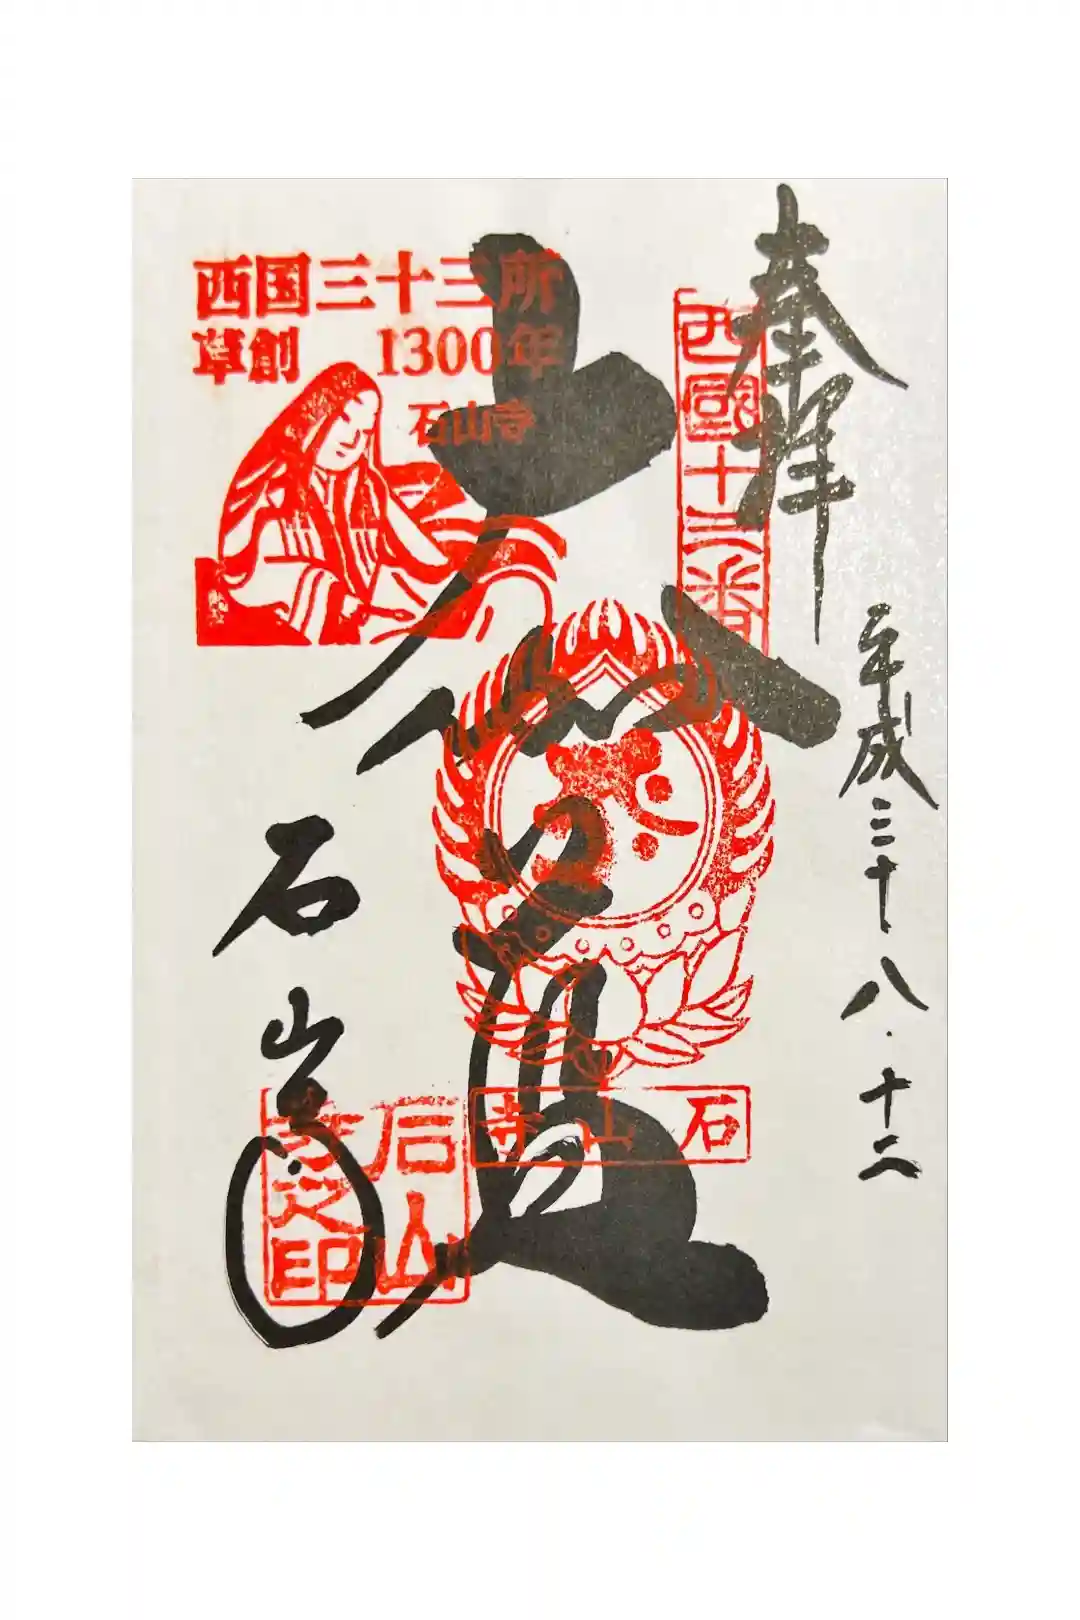 奉拝
平成三十八・十二
西國十三番
大伽藍
西国三十三所
草創 1300年
石山寺
石山寺
石山寺
石山寺之印